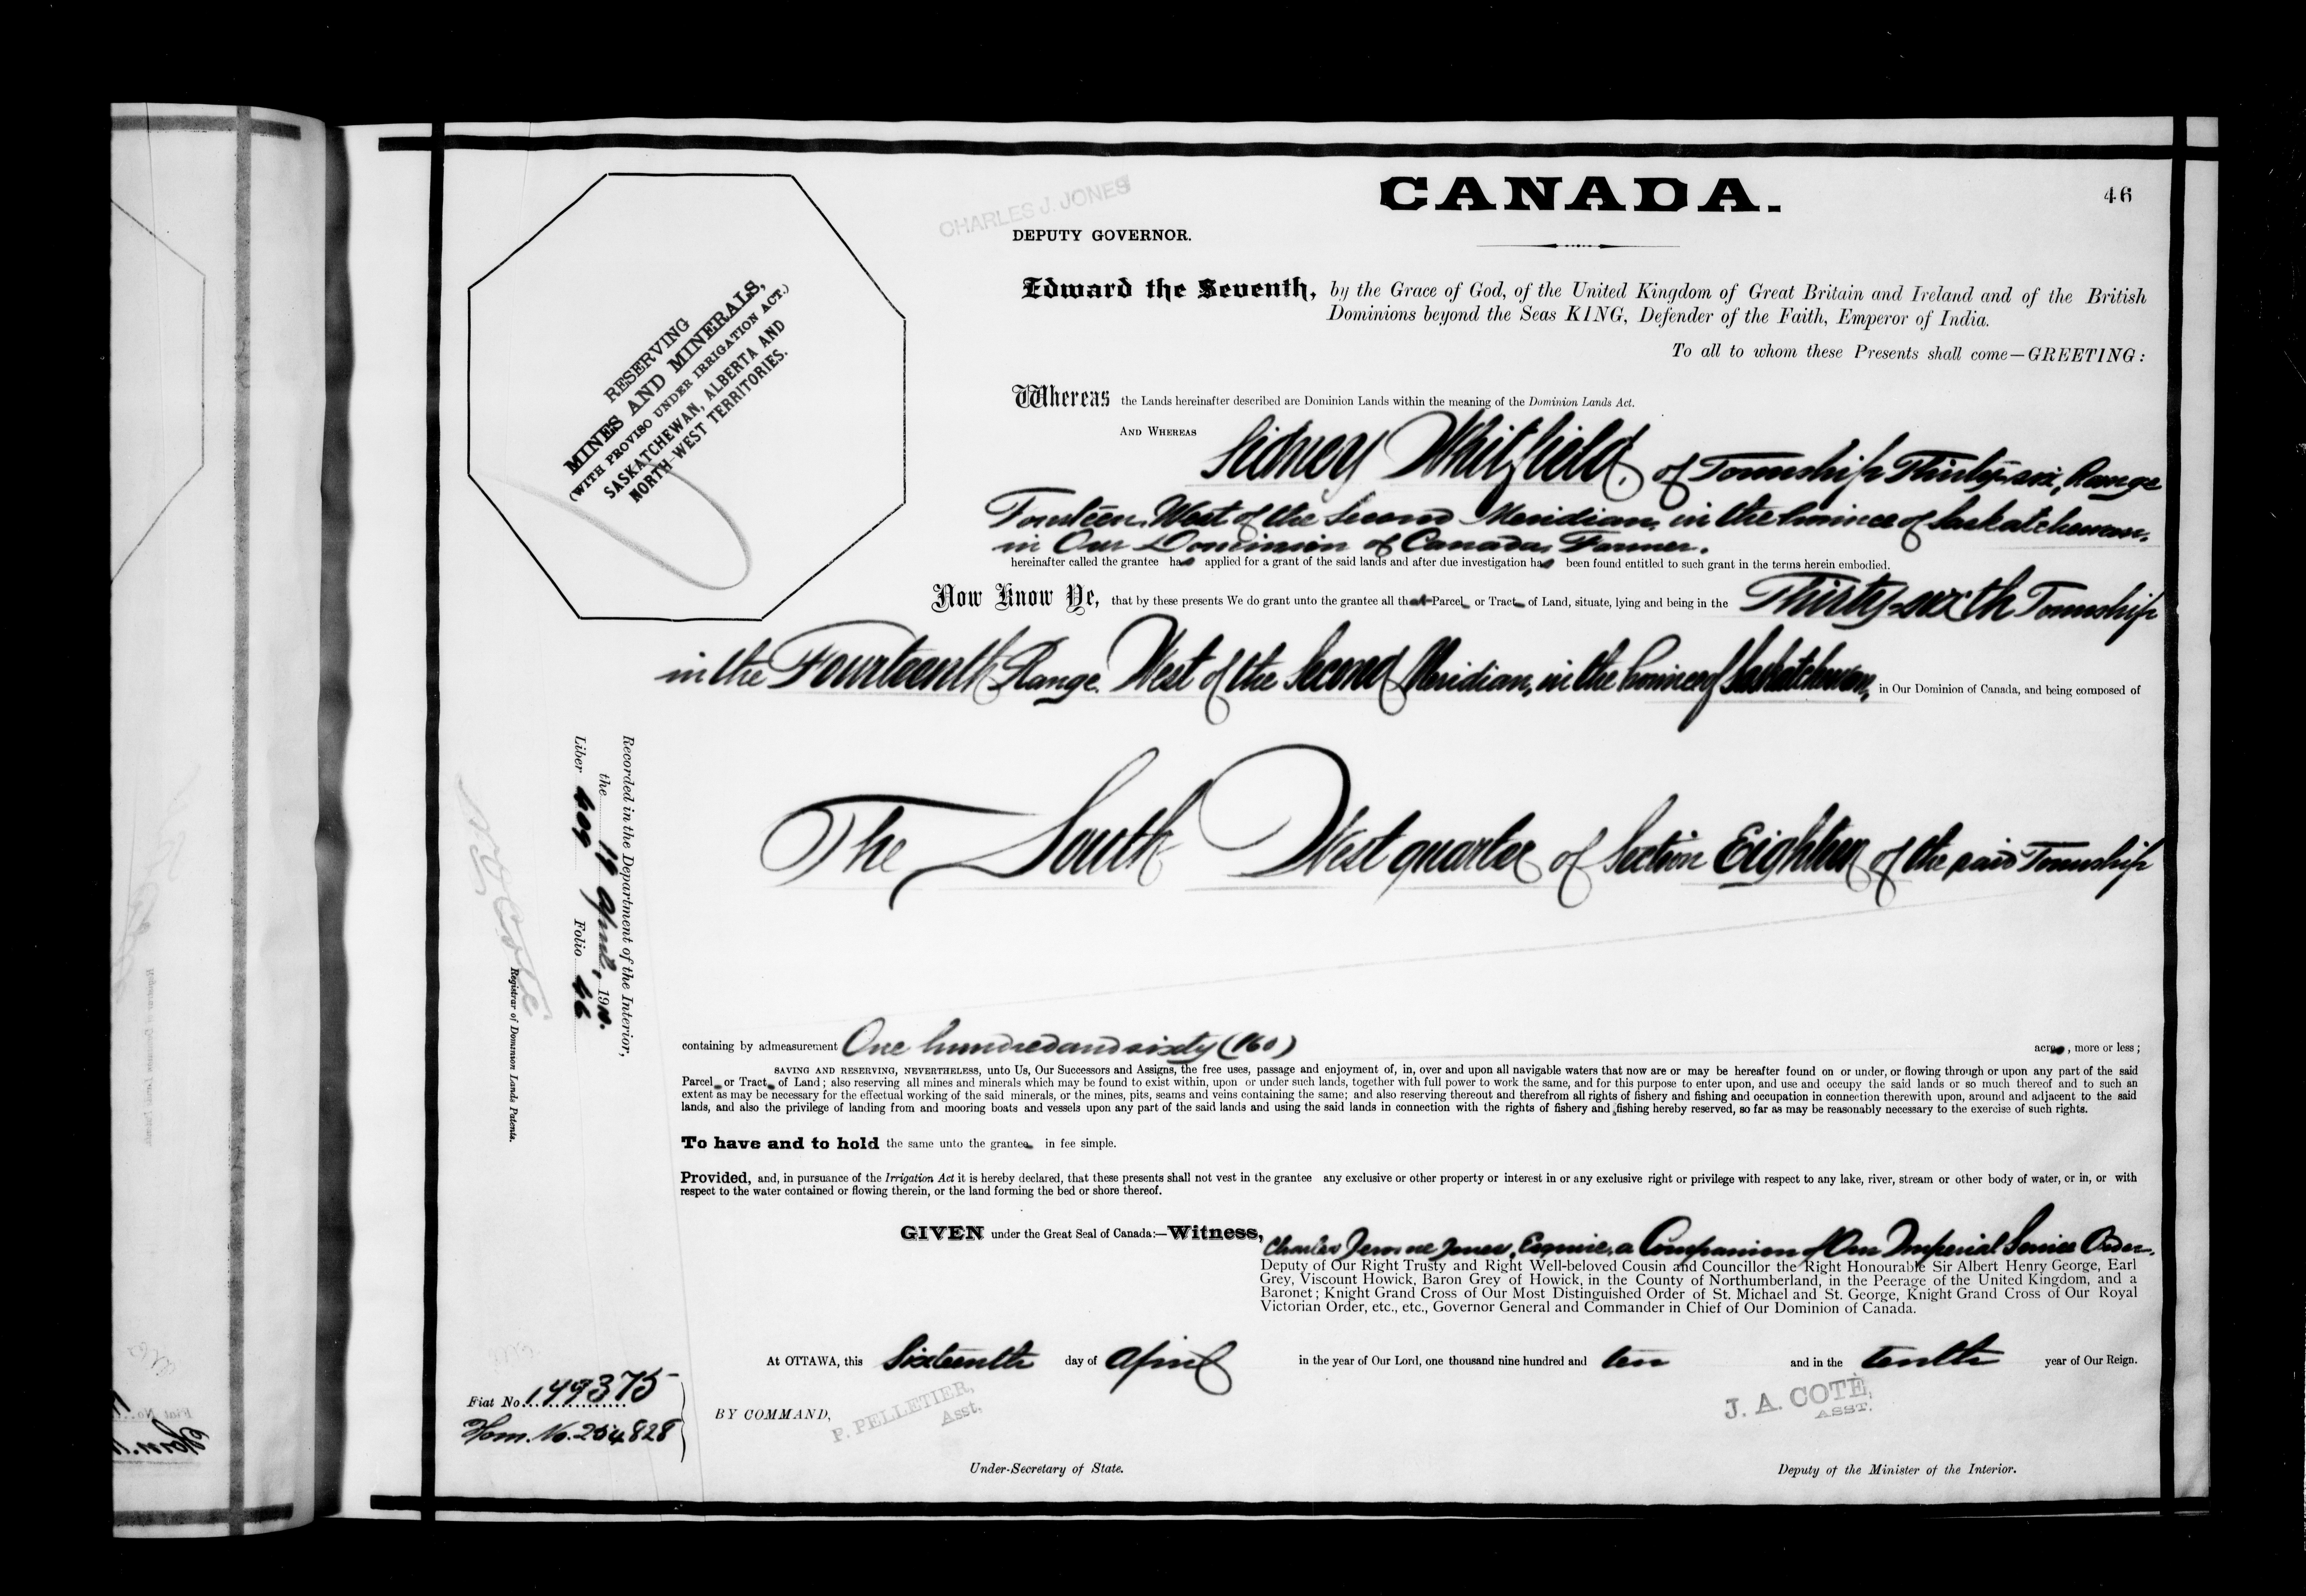 CANADA.
46
CHARLES J. JONES
DEPUTY GOVERNOR.
RESERVING
MINES AND MINERALS,
(WITH PROVISO UNDER IRRIGATION ACT.)
SASKATCHEWAN, ALBERTA AND
NORTH-WEST TERRITORIES.
Edward the Seventh, by the Grace of God, of the United Kingdom of Great Britain and Ireland and of the British
Dominions beyond the Seas KING, Defender of the Faith, Emperor of India.
To all to whom these Presents shall come—GREETING:
Whereas the Lands hereinafter described are Dominion Lands within the meaning of the Dominion Lands Act.
AND WHEREAS Sidney Whitfield, of Township Thirty-six, Range
Fourteen, West of the Second Meridian, in the Province of Saskatchewan,
in Our Dominion of Canada, Farmer.
hereinafter called the grantee has applied for a grant of the said lands and after due investigation has been found entitled to such grant in the terms herein embodied.
Now Know Ye, that by these presents We do grant unto the grantee all that Parcel or Tract of Land, situate, lying and being in the Thirty-sixth Township
in the Fourteenth Range West of the Second Meridian, in the Province of Saskatchewan, in Our Dominion of Canada, and being composed of
The South West quarter of Section Eighteen of the said Township
containing by admeasurement One hundred and sixty (160) acres, more or less;
SAVING AND RESERVING, NEVERTHELESS, unto Us, Our Successors and Assigns, the free uses, passage and enjoyment of, in, over and upon all navigable waters that now are or may be hereafter found on or under, or flowing through or upon any part of the said
Parcel or Tract of Land; also reserving all mines and minerals which may be found to exist within, upon or under such lands, together with full power to work the same, and for this purpose to enter upon, and use and occupy the said lands or so much thereof and to such an
extent as may be necessary for the effectual working of the said minerals, or the mines, pits, seams and veins containing the same; and also reserving thereout and therefrom all rights of fishery and fishing and occupation in connection therewith upon, around and adjacent to the said
lands, and also the privilege of landing from and mooring boats and vessels upon any part of the said lands and using the said lands in connection with the rights of fishery and fishing hereby reserved, so far as may be reasonably necessary to the exercise of such rights.
To have and to hold the same unto the grantee in fee simple.
Provided, and, in pursuance of the Irrigation Act it is hereby declared, that these presents shall not vest in the grantee any exclusive or other property or interest in or any exclusive right or privilege with respect to any lake, river, stream or other body of water, or in, or with
respect to the water contained or flowing therein, or the land forming the bed or shore thereof.
GIVEN under the Great Seal of Canada:—Witness, Charles Jerome Jones, Esquire, a Companion of Our Imperial Service Order,
Deputy of Our Right Trusty and Right Well-beloved Cousin and Councillor the Right Honourable Sir Albert Henry George, Earl
Grey, Viscount Howick, Baron Grey of Howick, in the County of Northumberland, in the Peerage of the United Kingdom, and a
Baronet; Knight Grand Cross of Our Most Distinguished Order of St. Michael and St. George, Knight Grand Cross of Our Royal
Victorian Order, etc., etc., Governor General and Commander in Chief of Our Dominion of Canada.
At OTTAWA, this Sixteenth day of April in the year of Our Lord, one thousand nine hundred and ten and in the tenth year of Our Reign.
BY COMMAND,
P. PELLETIER,
Asst.
J. A. COTÈ,
ASST.
Under-Secretary of State.
Deputy of the Minister of the Interior.
Recorded in the Department of the Interior,
the 19 April, 1910.
Liber 609 Folio 46
Registrar of Dominion Lands Patents.
Fiat No. 149375
Hom. No. 254828